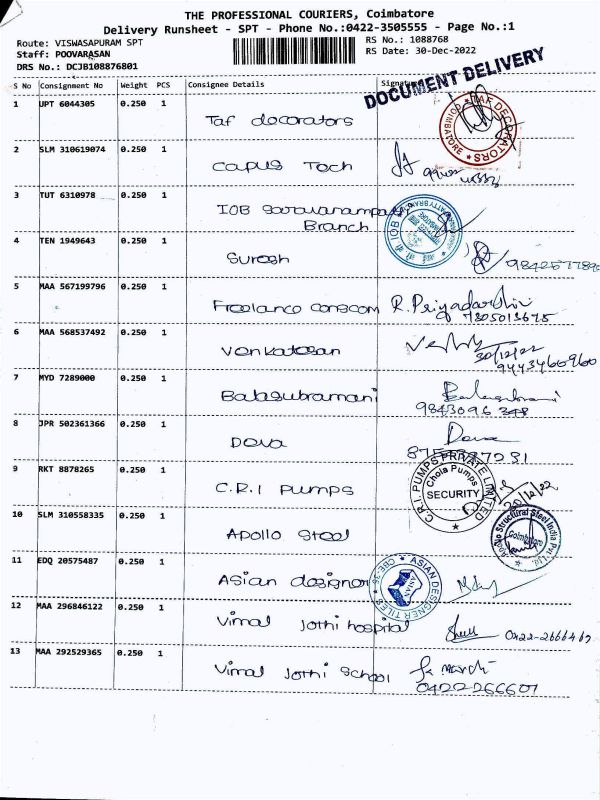 THE PROFESSIONAL COURIERS, Coimbatore
Delivery Runsheet - SPT - Phone No.:0422-3505555 - Page No.:1
Route: VISWASAPURAM SPT
RS No.: 1088768
Staff: POOVARASAN
RS Date: 30-Dec-2022
DRS No.: DCJB108876801
DOCUMENT DELIVERY
S No Consignment No Weight PCS Consignee Details Signature
1 UPT 6044305 0.250 1
Taf decorators
COIMBATORE ★ TAF DECORATORS ★
2 SLM 310619074 0.250 1
Capus Tech
3 TUT 6310978 0.250 1
IOB Saravanampatty
Branch
4 TEN 1949643 0.250 1
Suresh
5 MAA 567199796 0.250 1
Freelance conecom R. Priyadarshini
7305013675
6 MAA 568537492 0.250 1
Venkatesan
30/12/22
9443466960
7 MYD 7289000 0.250 1
Balasubramani
9843096348
8 JPR 502361366 0.250 1
Deva Deva
9 RKT 8878265 0.250 1
C.R.I pumps
C.R.I. PUMPS PRIVATE LIMITED
Chola Pumps
SECURITY
30/12/22
10 SLM 310558335 0.250 1
Apollo Steel
Apollo Structural Steel India Pvt. Ltd.
Coimbatore
11 EDQ 20575487 0.250 1
Asian designer
ASIAN DESIGNER TILES ★ CBE-35 ★
ASIAN
12 MAA 296846122 0.250 1
Vimal Jothi hospital
13 MAA 292529365 0.250 1
Vimal Jothi School
0422-266607